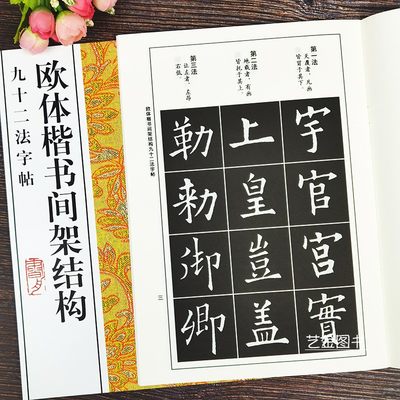 欧体楷书间架结构
九十二法字帖
第一法
天覆者，凡画
皆冒于其下。
第二法
地载者，有画
皆托于其上。
第三法
让左者，左昂
右低。
宇官宫實
上皇豈盖
勒御卿
欧体楷书间架结构九十二法字帖
三